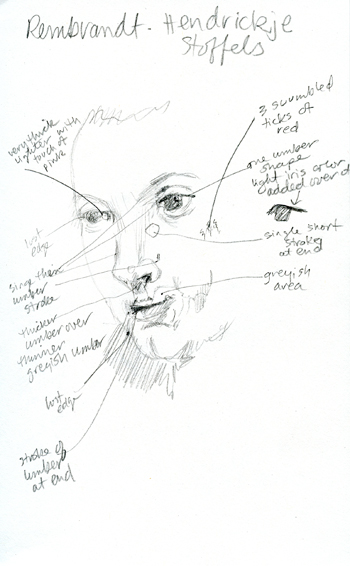 Rembrandt - Hendrickje
Stoffels
very thick
lighter with
touch of
pink
3 scumbled
ticks of
red
one umber
shape
light iris color
added over
lost
edge
single short
stroke
at end
umber
stroke
greyish
area
thicker
umber over
thinner
greyish umber
lost
edge
stroke of
umber
at end